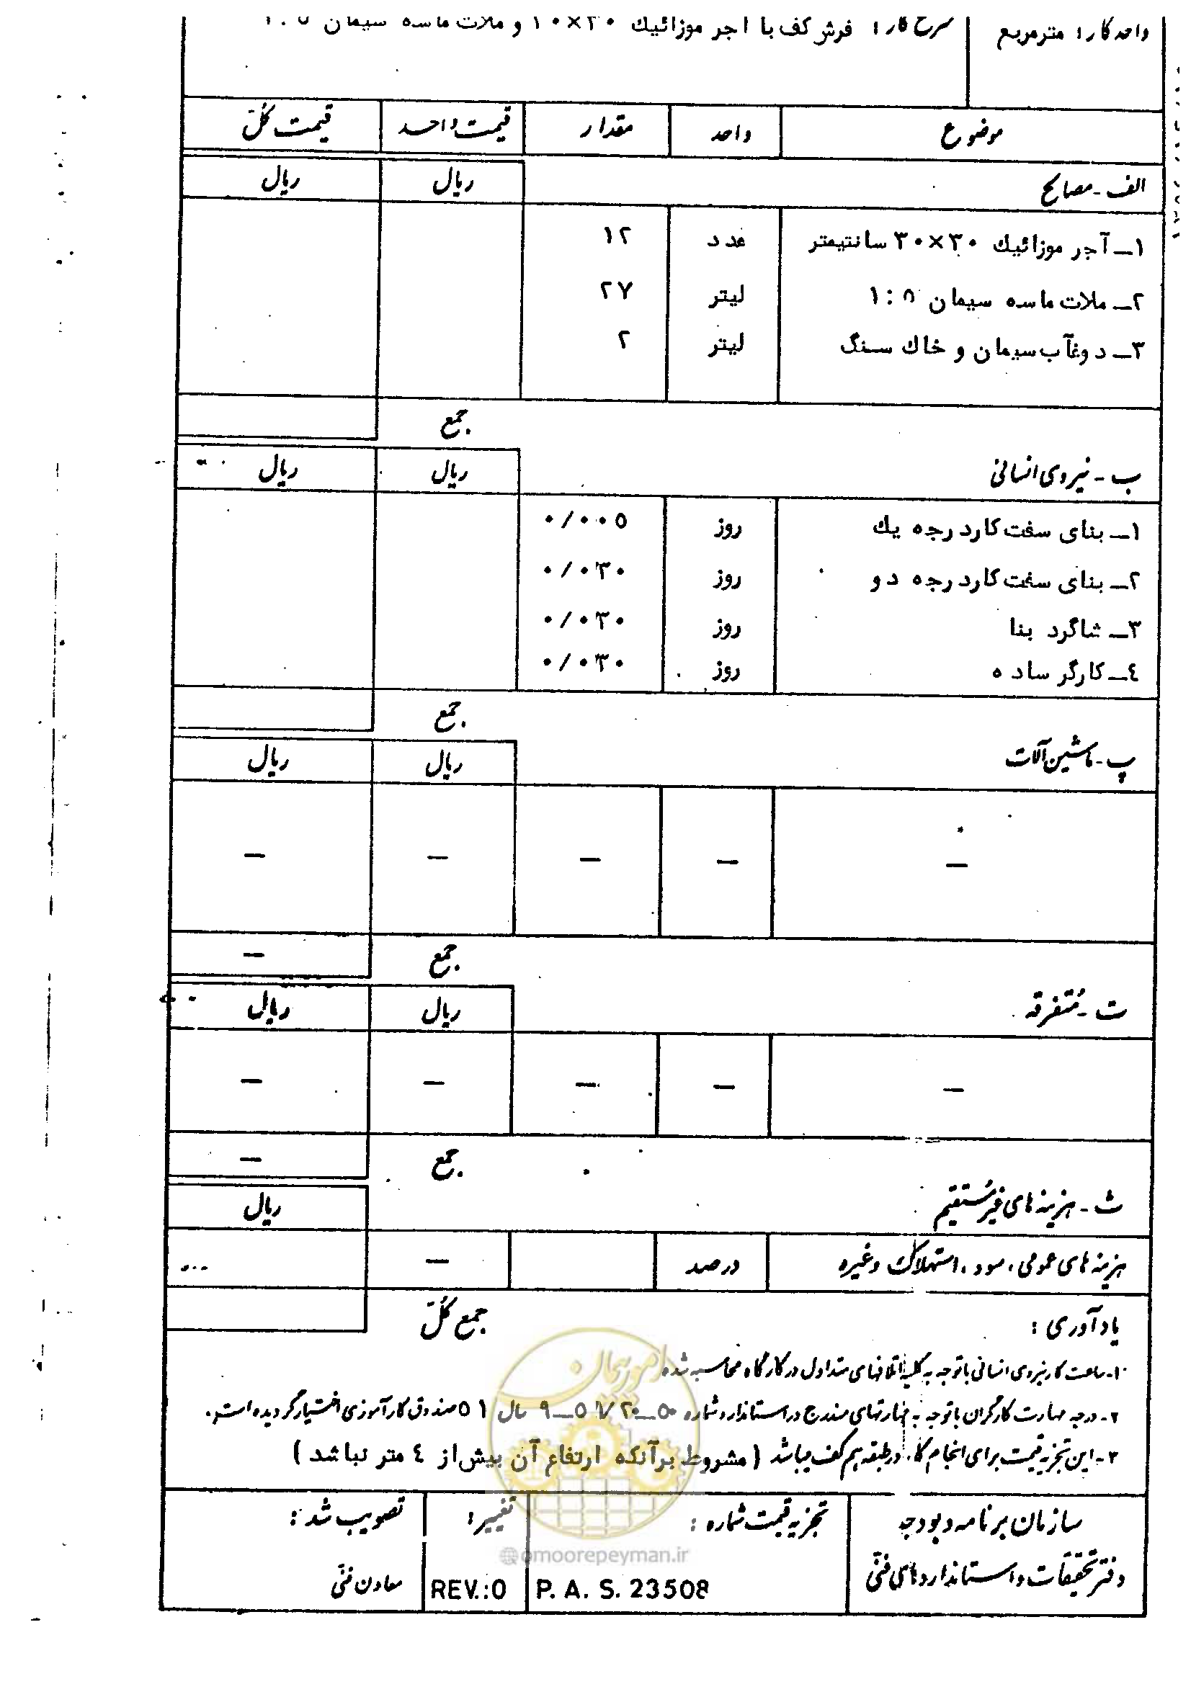 واحد کار: مترمربع شرح کار: فرش کف با آجر موزائیك ۳۰×۱۰ و ملات ماسه سیمان ۱:۵
موضوع واحد مقدار قیمت واحد قیمت کل
الف - مصالح ریال ریال
۱ـ آجر موزائیك ۳۰×۳۰ سانتیمتر عدد ۱۲
۲ـ ملات ماسه سیمان ۱:۵ لیتر ۲۷
۳ـ دوغآب سیمان و خاك سنگ لیتر ۲
جمع
ب - نیروی انسانی ریال ریال
۱ـ بنای سفت کار درجه یك روز ۰/۰۰۵
۲ـ بنای سفت کار درجه دو روز ۰/۰۳۰
۳ـ شاگرد بنا روز ۰/۰۳۰
٤ـ کارگر ساده روز ۰/۰۳۰
جمع
پ - ماشین آلات ریال ریال
— — — — —
جمع —
ت - متفرقه ریال ریال
— — — — —
جمع —
ث - هزینه های غیرمستقیم ریال
هزینه های عمومی، سود، استهلاک وغیره درصد —
جمع کل
یادآوری:
۱- ساعت کار نیروی انسانی با توجه به کلیه اتلافهای متداول در کارگاه محاسبه شده
۲- درجه مهارت کارگران با توجه به مهارتهای مندرج در استاندارد شماره سال ۵۱ صندوق کارآموزی اختیار گردیده است.
۳- این تجزیه قیمت برای انجام کار در طبقه هم کف میباشد (مشروط برآنکه ارتفاع آن بیش از ٤ متر نباشد)
امور پیمان
@omoorepeyman.ir
سازمان برنامه و بودجه تجزیه قیمت شماره: تغییر: تصویب شد:
دفتر تحقیقات و استانداردهای فنی P. A. S. 23508 REV.:0 معاون فنی